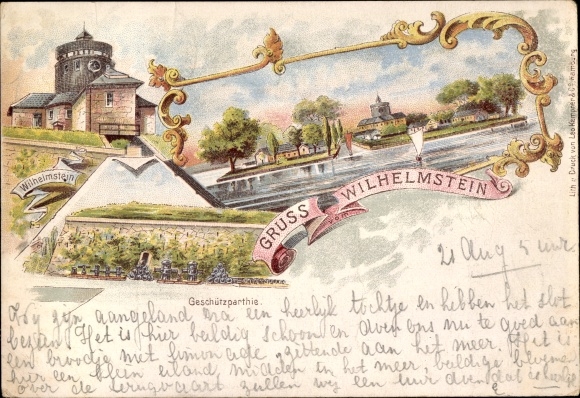 Wilhelmstein
GRUSS
vom
WILHELMSTEIN
Lith. u. Druck von
Hamburg
Geschützparthie.
21 Aug 5 uur
Wy zijn aangeland na een heerlijk tochtje en hebben het slot
bezien. Het is hier baldig schoon en doen ons nu te goed aan
een broodje met limonade, zittende aan het meer. Het is
hier een klein eiland midden in het meer,
over de terugvaart zullen wy een uur doen dat is